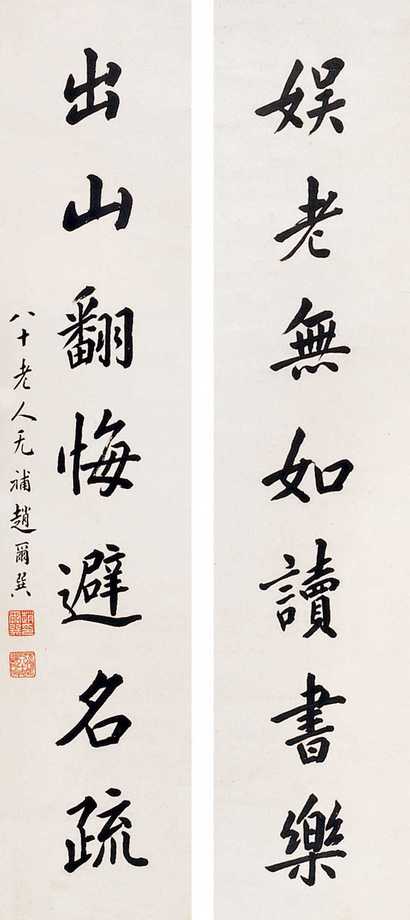 娱老無如讀書樂
出山翻悔避名疏
八十老人无補趙爾巽